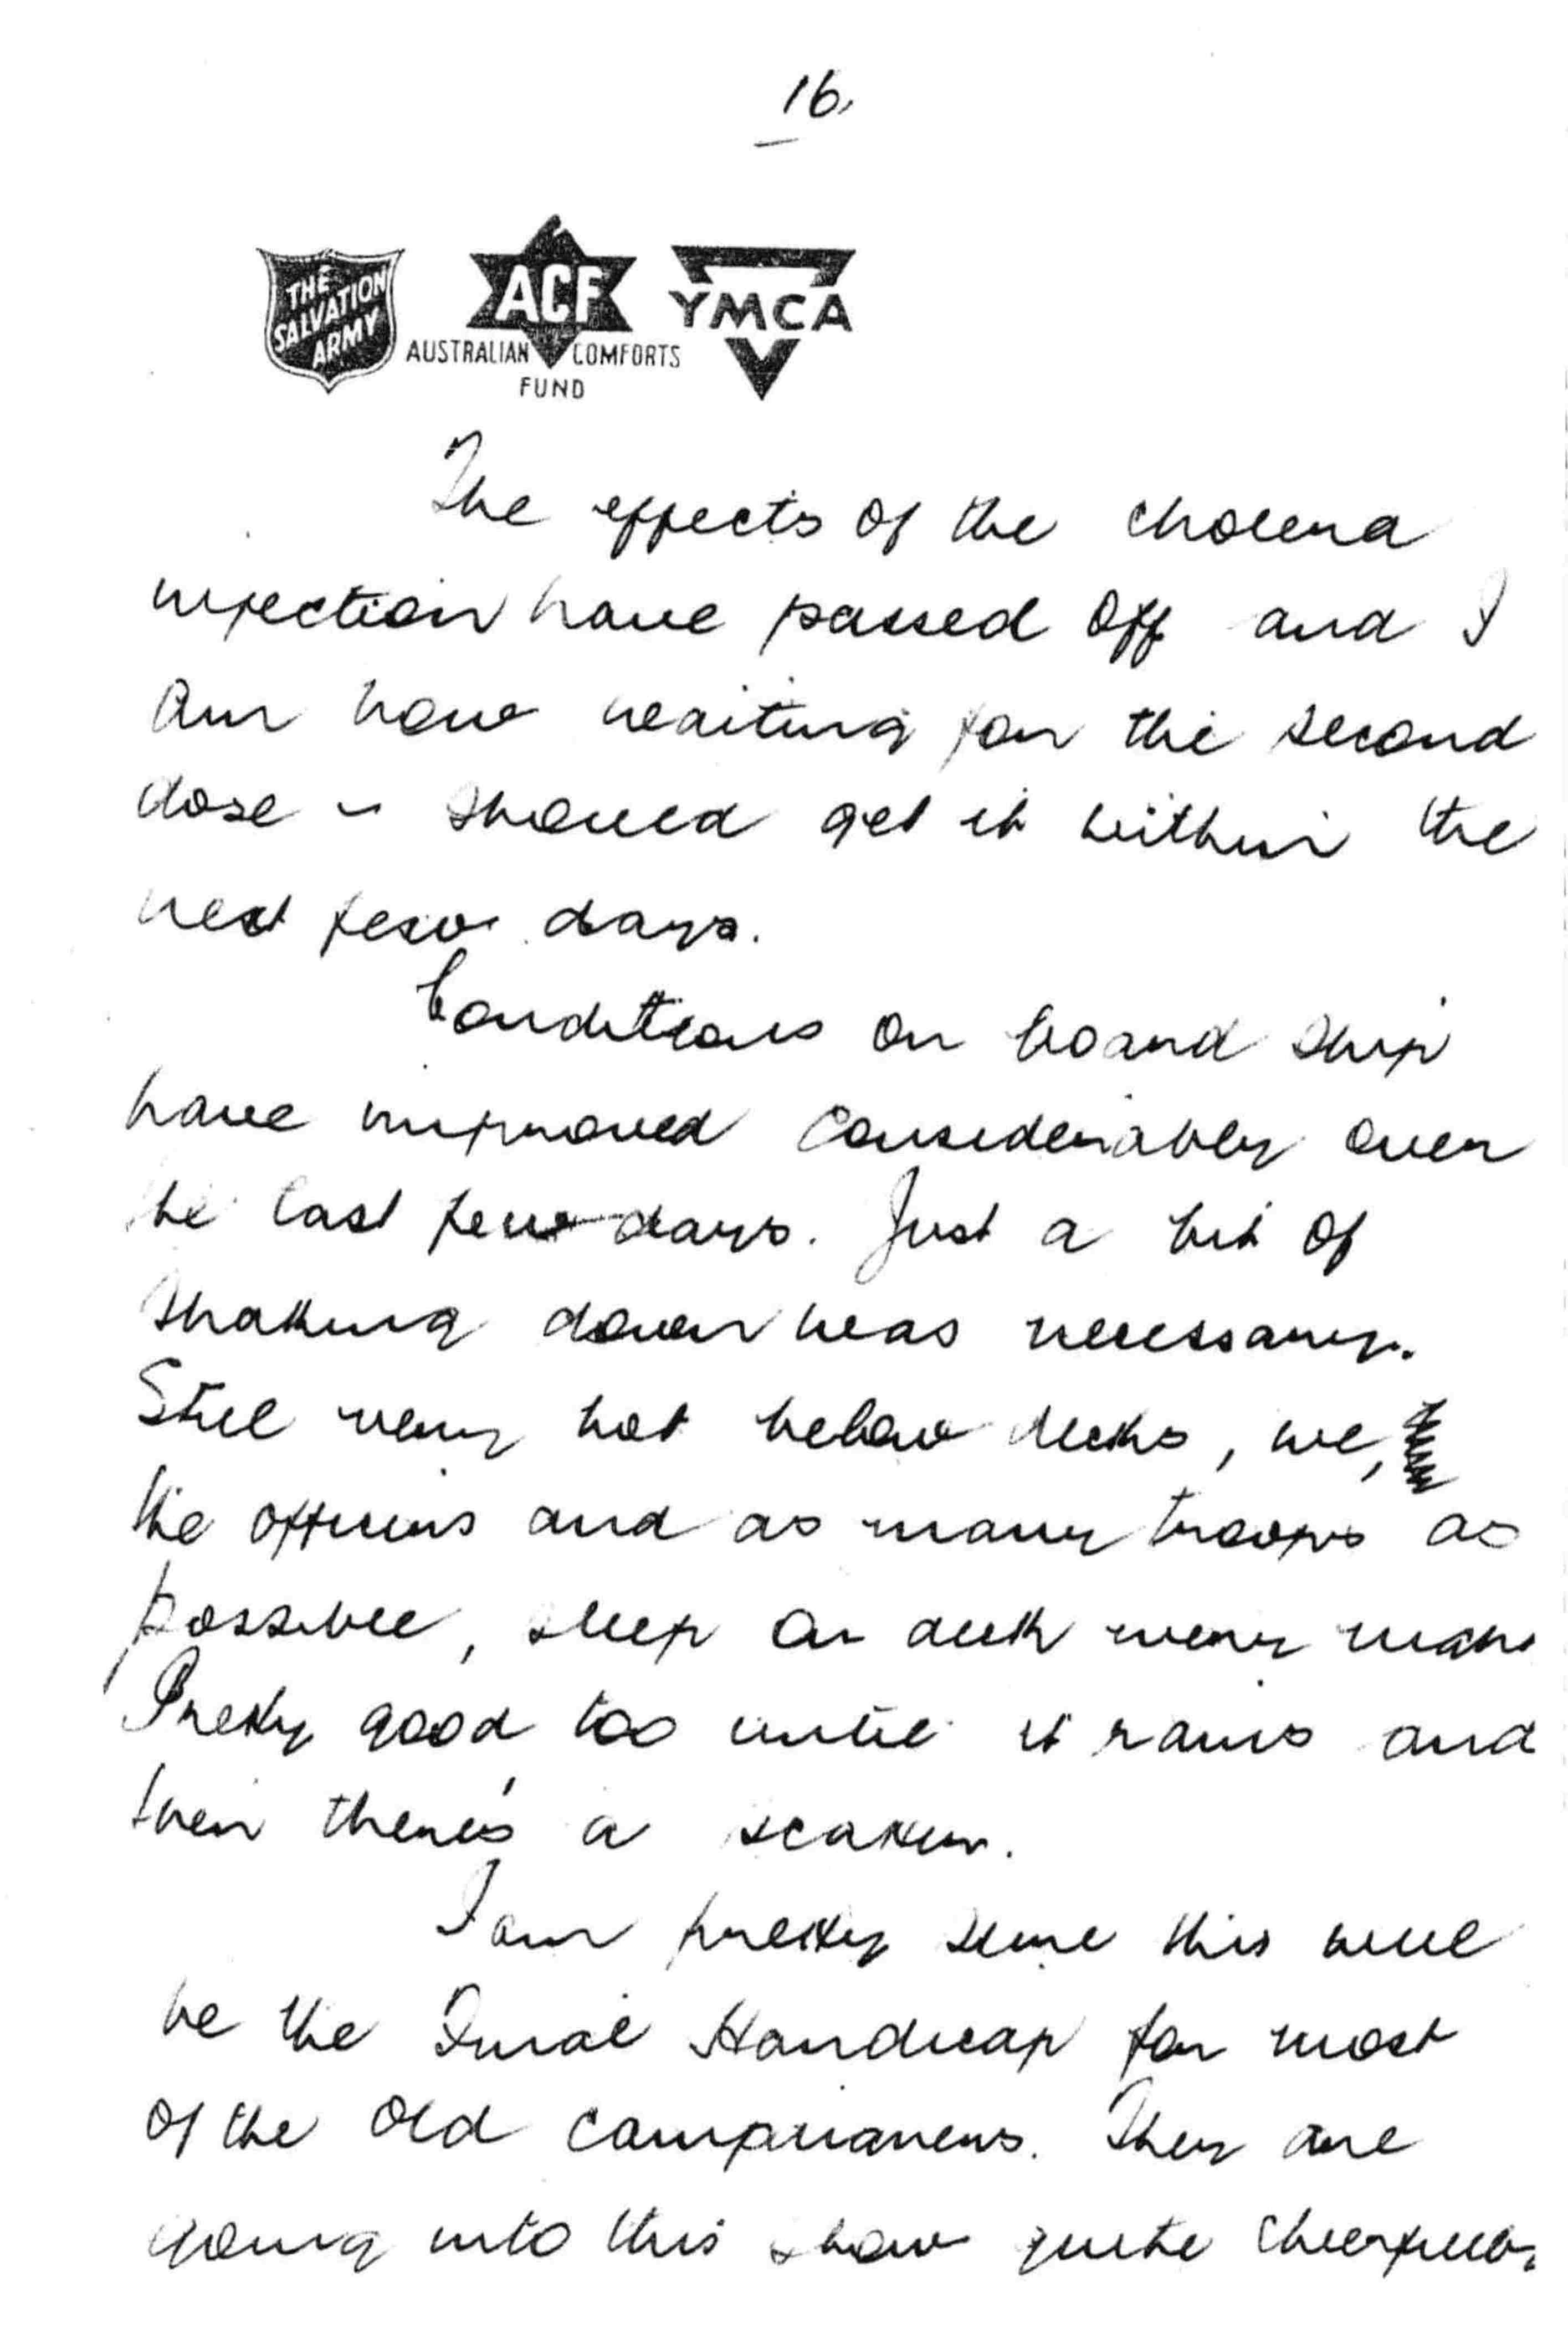 16.
THE
SALVATION
ARMY
ACF
AUSTRALIAN COMFORTS
FUND
YMCA
The effects of the cholera
injection have passed off and I
am now waiting for the second
dose - should get it within the
next few days.
Conditions on board ship
have improved considerably over
the last few days. Just a bit of
shaking down was necessary.
Still very hot below decks, we,
the officers and as many troops as
possible, sleep on deck every night
Pretty good too until it rains and
then there's a scatter.
I am pretty sure this will
be the Final Handicap for most
of the old campaigners. They are
going into this show quite cheerfully.